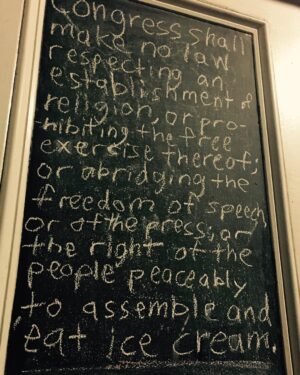 Congress shall
make no law
respecting an
establishment of
religion, or pro-
hibiting the free
exercise thereof;
or abridging the
freedom of speech,
or of the press; or
the right of the
people peaceably
to assemble and
eat ice cream.